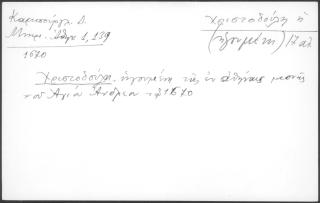 Καμπούρογλ. Δ.
Μνημ. Ἀθην 1, 139
1670
Χριστοδούλη ἡ
(ἡγουμένη) 17 αἰ
Χριστοδούλη ἡγουμένη τῆς ἐν Ἀθήναις μονῆς
τοῦ Ἁγίου Ἀνδρέου τῷ 1670